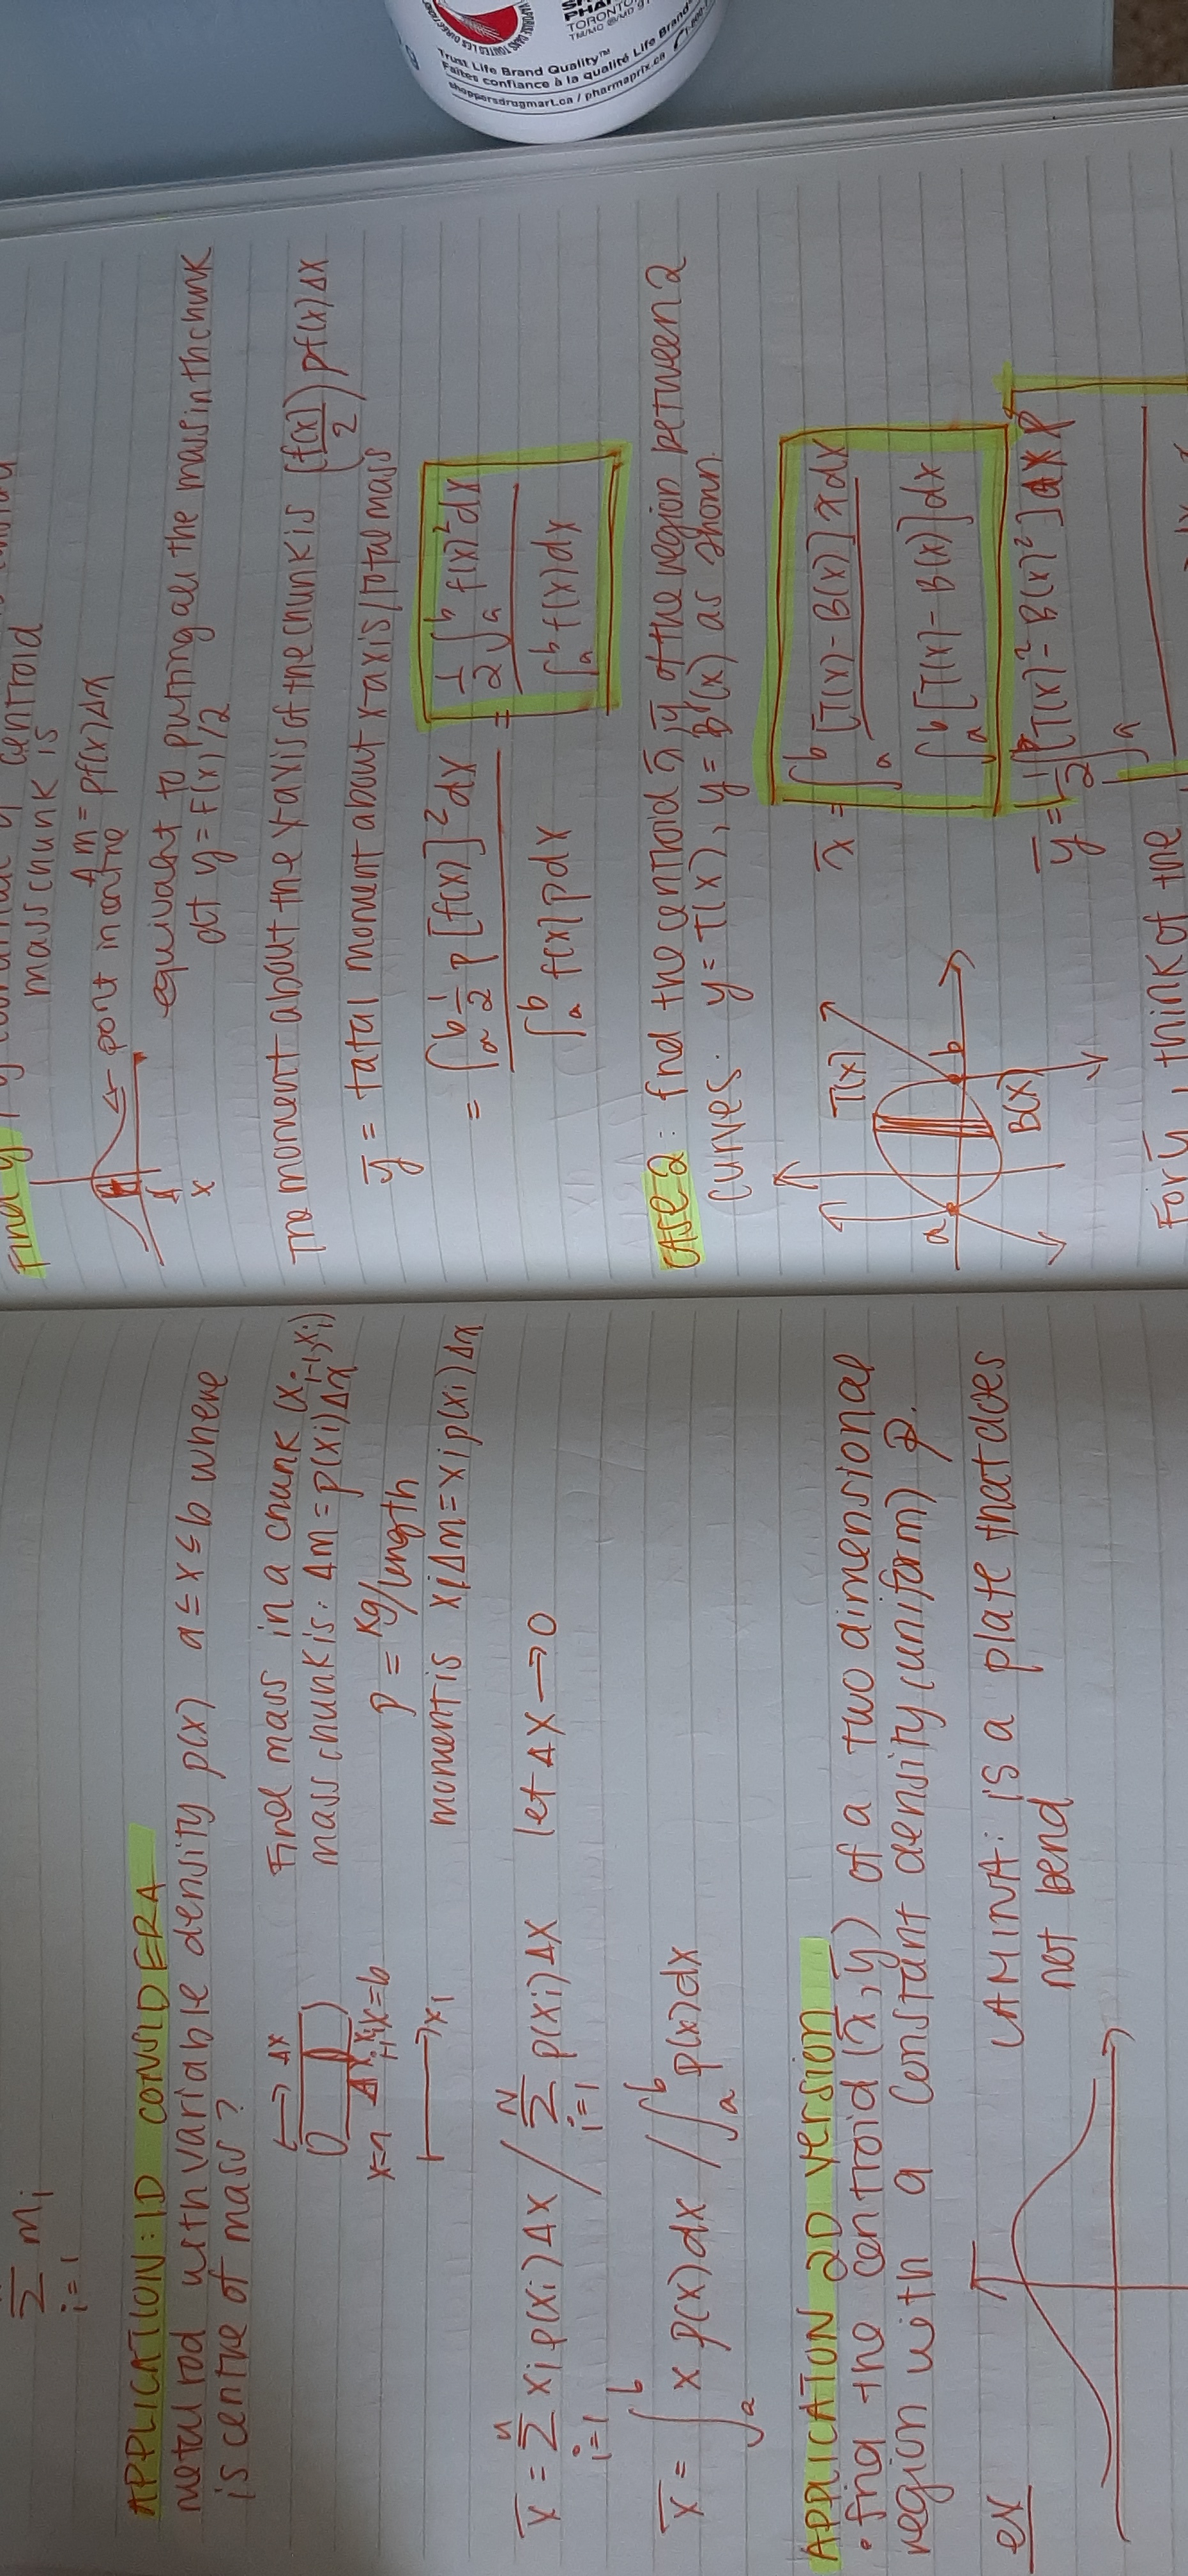 Σ mi
i=1
APPLICATIION: 1D CONSIDERA
metal rod with variable density p(x) a ≤ x ≤ b where
is centre of mass?
Δx
Find mass in a chunk (xi-1, xi)
mass chunk is: Δm = p(xi)Δx
x=a xi-1 xi x=b
P = Kg/length
x1
moment is xiΔm = xi p(xi) Δx
x̄ = n Σ i=1 xi p(xi) Δx / N Σ i=1 p(xi) Δx let Δx → 0
x̄ = ∫ₐᵇ x p(x) dx / ∫ₐᵇ p(x) dx
APPLICATON 2D version
• find the centroid (x̄, ȳ) of a two dimensional
region with a constant density (uniform) P.
ex
LAMINA: is a plate that does
not bend
Find ȳ centroid
mass chunk is
Δm = pf(x)Δx
x
equivalent to putting all the mass in th chunk
at y = F(x)/2
The moment about the x-axis of the chunk is (f(x)/2) pf(x) Δx
ȳ = tatal moment about x-axis / total mass
= ∫ₐᵇ 1/2 p [f(x)]² dx / ∫ₐᵇ f(x) p dx = 1/2 ∫ₐᵇ f(x)² dx / ∫ₐᵇ f(x) dx
CASE 2: fnd the centroid x̄, ȳ of the region between 2
curves. y = T(x), y = B(x) as shown.
T(x)
a b
B(x)
x̄ = ∫ₐᵇ [T(x) - B(x)] x dx / ∫ₐᵇ [T(x) - B(x)] dx
ȳ = 1/2 ∫ₐ [T(x)² - B(x)²] dx
For ȳ, think of the
Life Brand Quality™
TORONTO